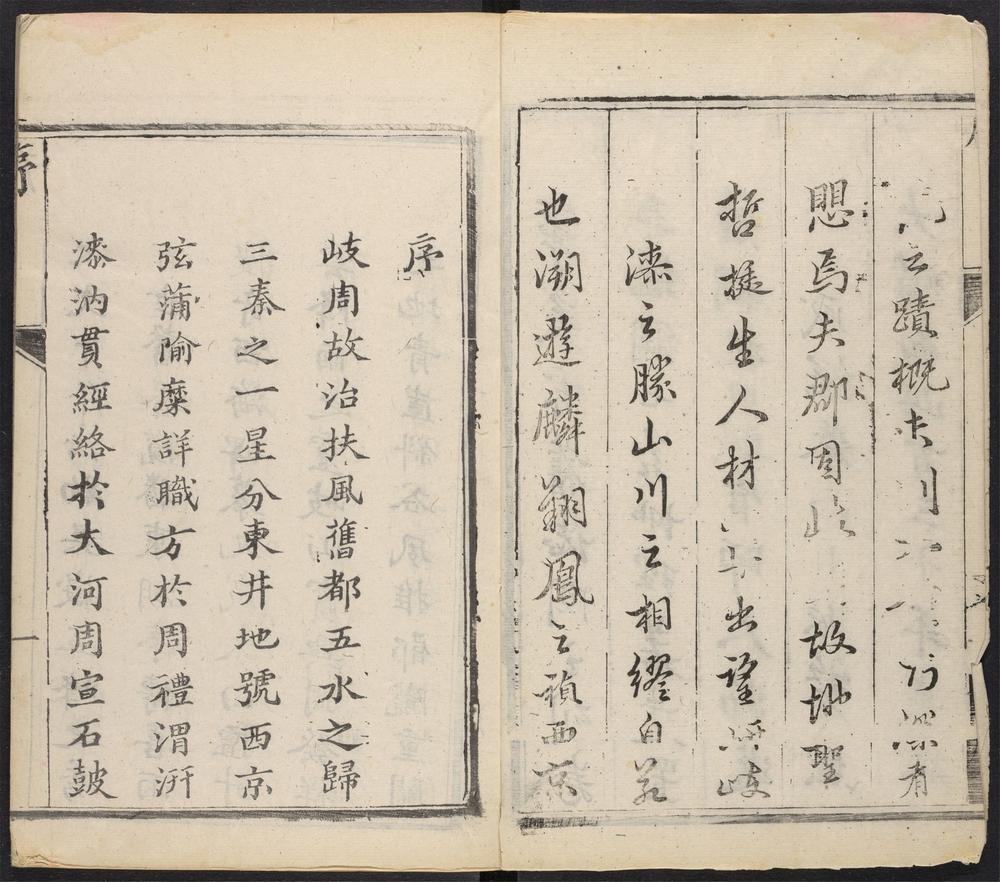 之蹟概
愳焉夫郡固 故地聖
哲挺生人材 出 岐
漆之勝山川之相繆自
也溯遊麟翔鳳之禎西京
序
岐周故治扶風舊都五水之歸
三秦之一星分東井地號西京
弦蒲隃糜詳職方於周禮渭汧
漆汭貫經絡於大河周宣石皷
序
一